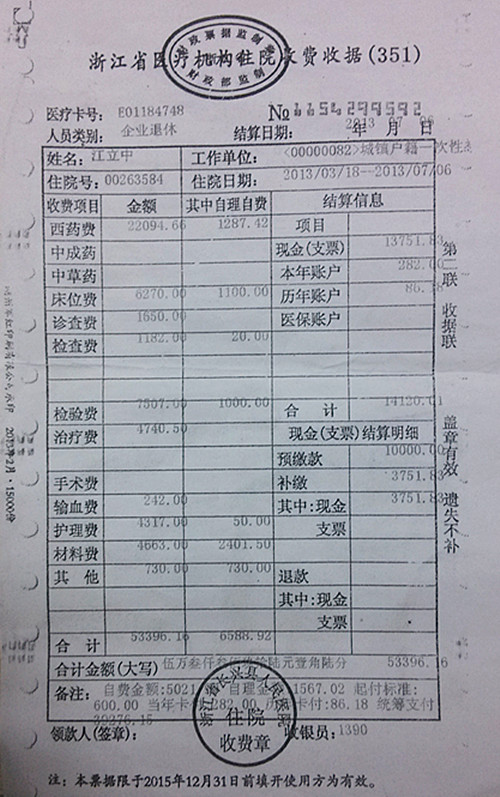 浙江省医疗机构住院收费收据(351)
医疗卡号: E01184748 № 1154299592
人员类别: 企业退休 结算日期: 2013 年 07 月 06 日
姓名: 江立中 工作单位: <00000082>城镇户籍一次性
住院号: 00263584 住院日期: 2013/03/18--2013/07/06
收费项目 金额 其中自理自费 结算信息
西药费 22094.66 1287.42 项目
中成药 现金(支票) 13751.83
中草药 本年账户 282.00
床位费 6270.00 1100.00 历年账户 86.18
诊查费 1650.00 医保账户
检查费 1182.00 20.00
检验费 7507.00 1000.00 合计 14120.01
治疗费 4740.50 现金(支票)结算明细
预缴款 10000.00
手术费 补缴 3751.83
输血费 242.00 其中:现金 3751.83
护理费 4317.00 50.00 支票
材料费 4663.00 2401.50
其他 730.00 730.00 退款
其中:现金
支票
合计 53396.16 6588.92
合计金额(大写) 伍万叁仟叁佰玖拾陆元壹角陆分 53396.16
备注: 自费金额:5021 自理金 1567.02 起付标准:
600.00 当年卡 282.00 卡付:86.18 统筹支付
39276.15
领款人(签章): 收银员: 1390
注: 本票据限于2015年12月31日前填开使用方为有效。
第二联 收据联
盖章有效 遗失不补
2013年2月·15000份
财政票据监制章
财政部监制
浙江省长兴县人民医院
住院
收费章